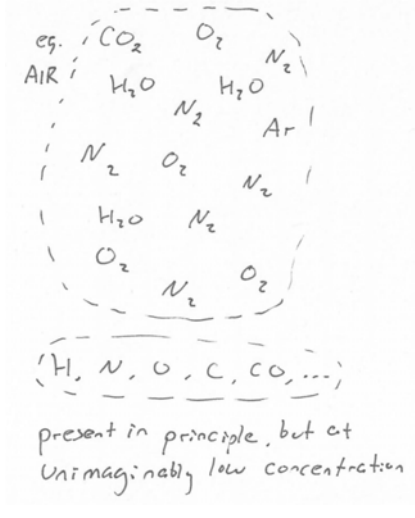 eg. CO₂ O₂
AIR N₂
H₂O H₂O
N₂
Ar
N₂ O₂
N₂
H₂O N₂
O₂
N₂ O₂
H, N, O, C, CO, ...
present in principle, but at
unimaginably low concentration